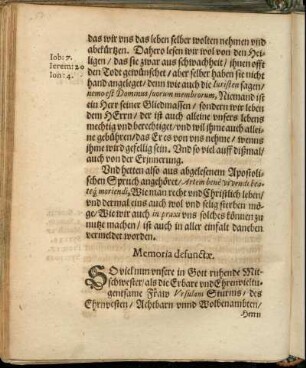 das wir vns das leben selber wolten nehmen vnd
abekürtzen. Dahero lesen wir wol von den Hei-
Iob: 7.
ligen / das sie zwar aus schwachheit / ihnen offt
Ierem: 20
den Todt gewünschet / aber selber haben sie nicht
Ion: 4.
hand angeleget / denn wie auch die Iuristen sagen /
nemo est Dominus suorum membrorum, Niemand ist
ein Herr seiner Gliedmassen / sondern wir leben
dem HErrn / der ist auch alleine vnsers lebens
mechtig vnd berechtiget / vnd wil ihme auch allei-
ne gebühren / das Er es von vns nehme / wenns
ihme wird gefellig sein. Vnd so viel auff dißmal /
auch von der Erinnerung.
Vnd hetten also aus abgelesenem Apostoli-
schen Spruch angehöret / Artem benè vivendi bea-
tèq; moriendi, Wie man recht vnd Christlich leben /
vnd dermal eins auch wol vnd selig sterben mö-
ge / Wie wir auch in praxi vns solches können zu
nutz machen / ist auch in aller einfalt daneben
vermeldet worden.
Memoria defunctæ.
SO viel nun vnsere in Gott ruhende Mit-
schwester / als die Erbare vnd Ehrenvieltu-
gentsame Fraw Ursulam Sturms / des
Ehrnvesten / Achtbarn vnnd Wolbenambten /
Herrn